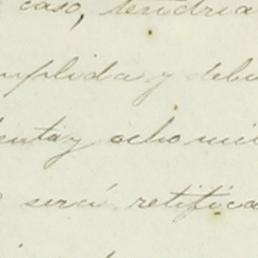 caso, tendria
mplida y debi
enta y ocho mi
será retifica